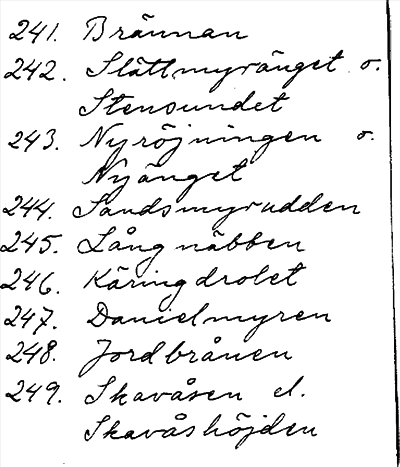 241. Brännan
242. Slåttmyränget o.
Stensundet
243. Nyröjningen o.
Nyänget
244. Sandsmyrudden
245. Långnäbben
246. Käringdrolet
247. Danielmyren
248. Jordbrånen
249. Skavåsen el.
Skavåshöjden